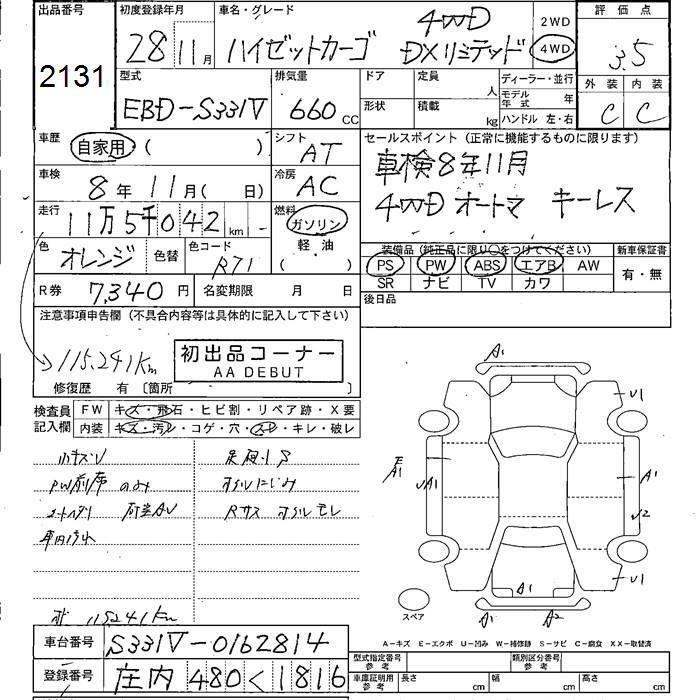 出品番号 初度登録年月 車名・グレード 評価点
2131 28 11月 ハイゼットカーゴ 4WD DXリミテッド 2WD 4WD 3.5
型式 排気量 ドア 定員 人 ディーラー・並行 外装 内装
EBD-S331V 660cc 形状 積載 kg モデル年式 年 ハンドル 左・右 C C
車歴 自家用 ( ) シフト AT セールスポイント (正常に機能するものに限ります)
車検 8年 11月( 日) 冷房 AC 車検8年11月
走行 11万5千042km 燃料 ガソリン 4WD オートマ キーレス
色 オレンジ 色替 色コード R71 軽油 ( ) 装備品 (純正品に限り○をつけてください) 新車保証書
PS PW ABS エアB AW 有・無
SR ナビ TV カワ
R券 7,340円 名変期限 月 日 後日品
注意事項申告欄 (不具合内容等は具体的に記入して下さい)
115,241Km 初出品コーナー
AA DEBUT
修復歴 有 〔箇所
検査員記入欄 FW キズ・飛石・ヒビ割・リペア跡・X要
内装 キズ・汚レ・コゲ・穴・スレ・キレ・破レ
小キズU
PW前席のみ オイルにじみ
Rサス オイルモレ
車内汚れ
115241Km
A1
U1
A1 UA1 A1
U2
U1
A1
A1 A2
スペア
A-キズ E-エクボ U-凹み W-補修跡 S-サビ C-腐食 XX-取替済
車台番号 S331V-0162814 型式指定番号 参考 類別区分番号 参考
登録番号 庄内 480 く 1816 車庫証明用 参考 長さ cm 幅 cm 高さ cm